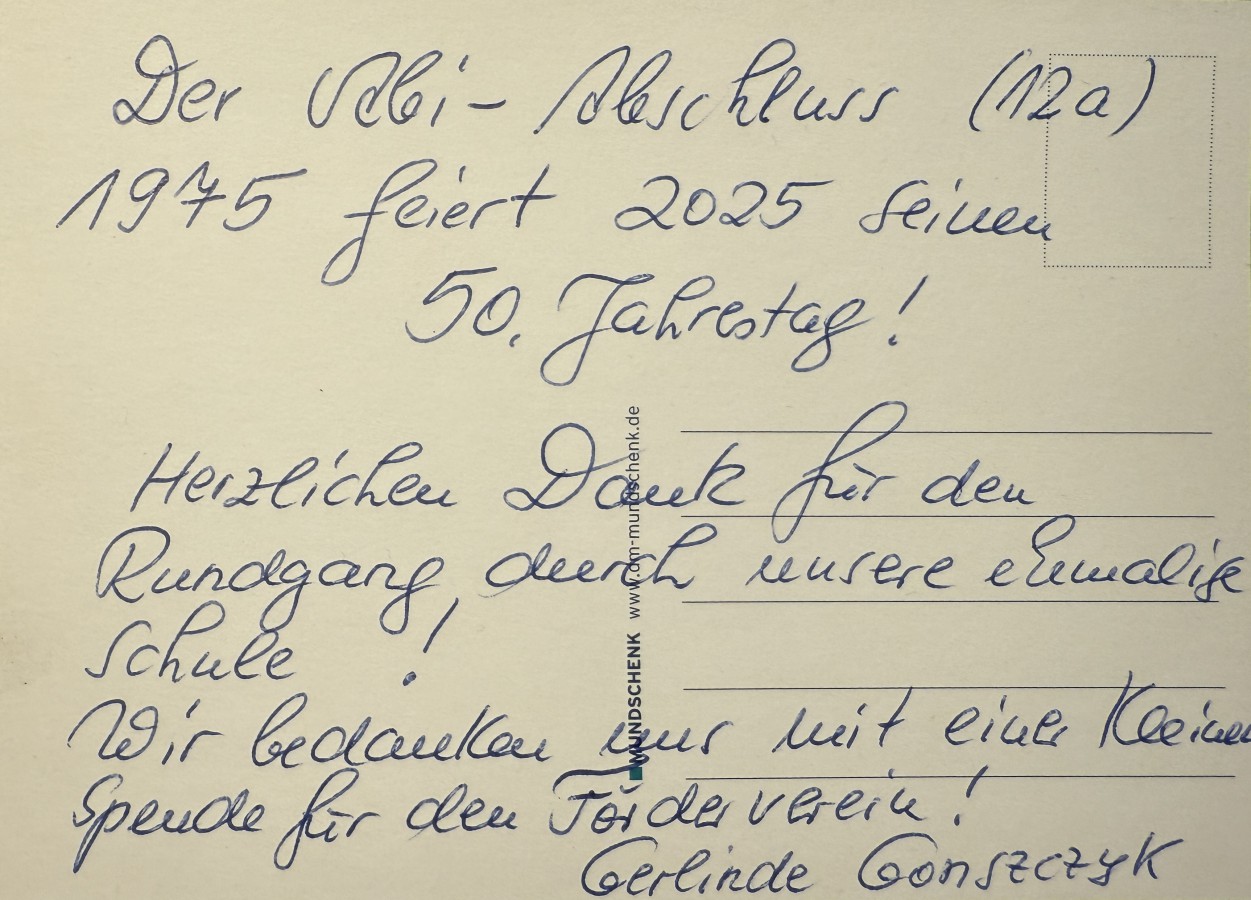 Der Abi-Abschluss (12a)
1975 feiert 2025 seinen
50. Jahrestag!
Herzlichen Dank für den
Rundgang durch unsere ehemalige
Schule !
Wir bedanken uns mit einer kleinen
Spende für den Förderverein!
Gerlinde Gonszczyk
MUNDSCHENK www.dm-mundschenk.de